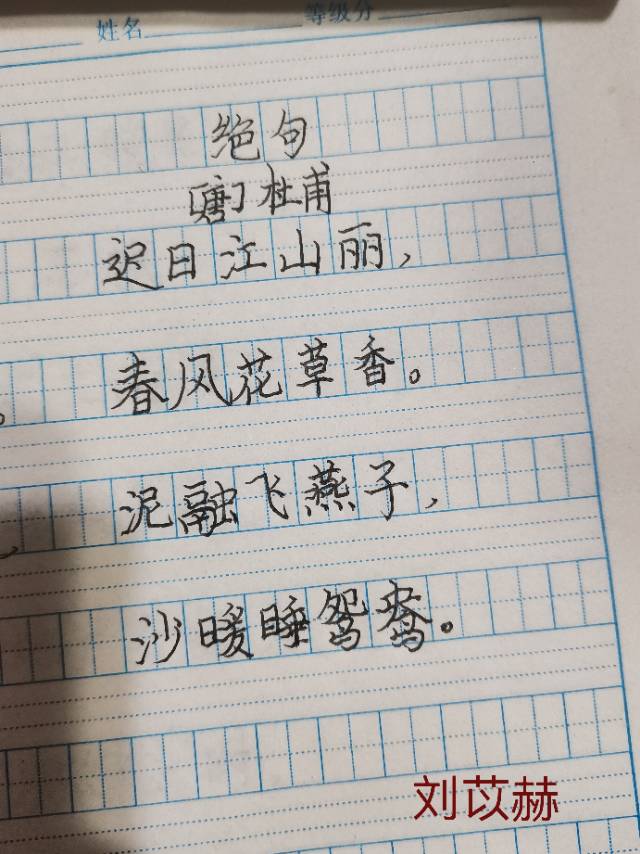 姓名
等级分
绝句
[唐]杜甫
迟日江山丽，
春风花草香。
泥融飞燕子，
沙暖睡鸳鸯。
刘苡赫